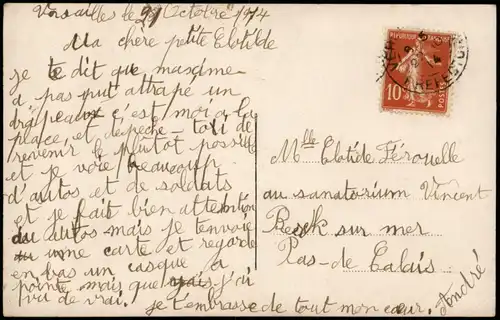 Versailles le 21 Octobre 1914
Ma chère petite Clotilde
je te dit que maxime
a pas put attrapé un
drapeaux c'est moi a la
place, et depeche-toi de
revenir le plutot possible
et je voie beaucoup
d'autos et de soldats
et je fait bien attention
au autos mais je t'envoie
une carte et regarde
en bas un casque a
pointe mais que j'ai
vu de vrai. je t'embrasse de tout mon cœur.
André
RÉPUBLIQUE FRANÇAISE
10
POSTES
VERSAILLES
Mlle Clotide Férouelle
au sanatorium Vincent
Berck sur mer
Pas-de Calais